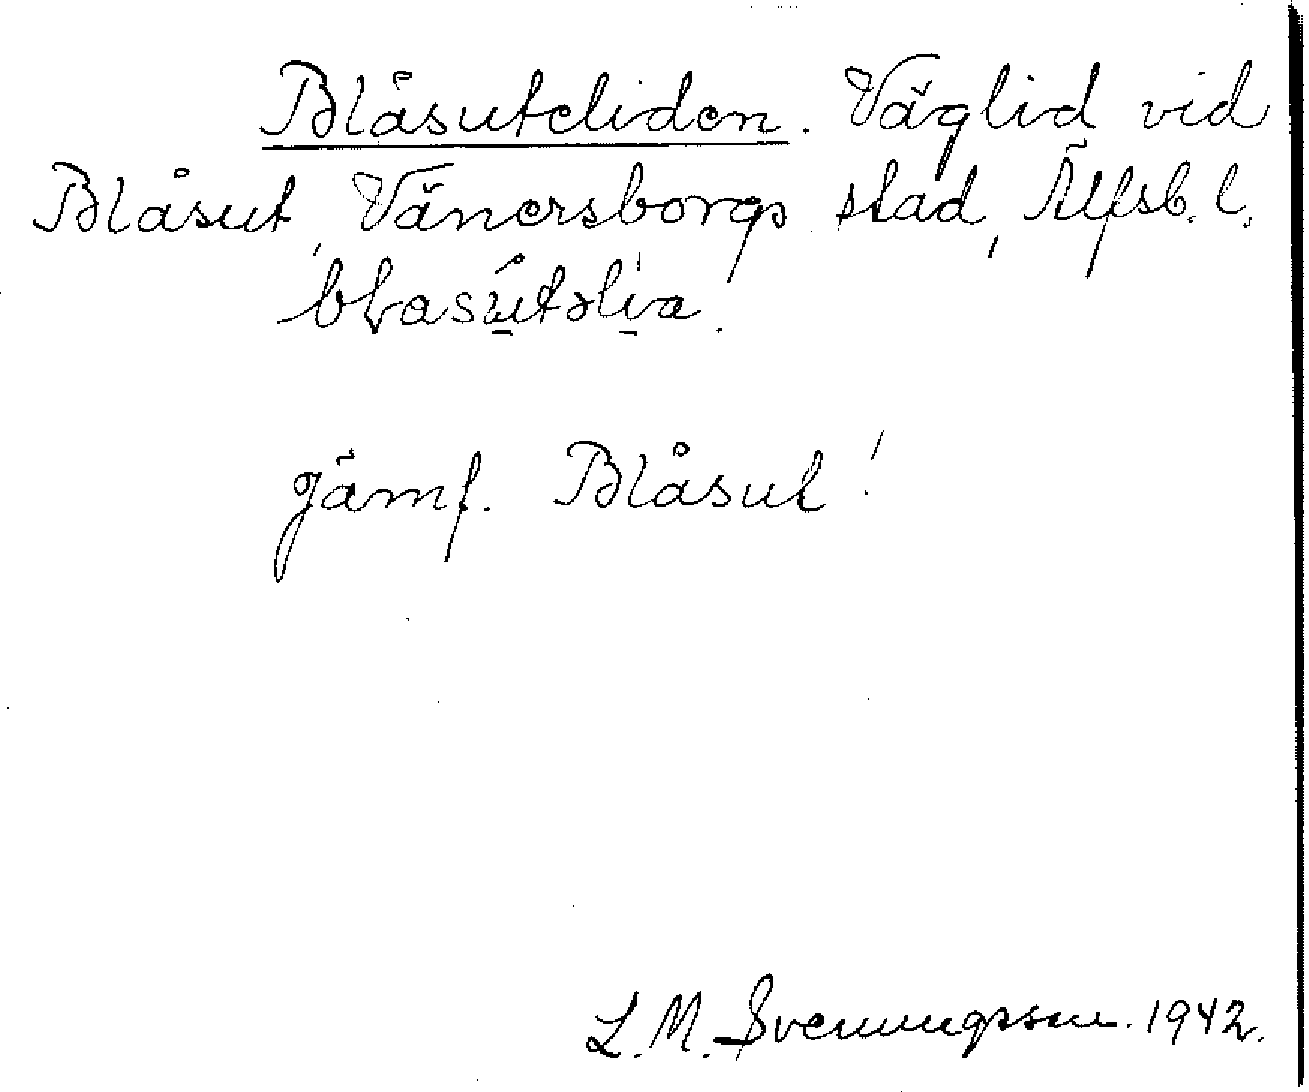 Blåsuteliden. Väglid vid
Blåsut, Vänersborgs stad, Älfsb. l.
jämf. Blåsut!
L. M. Svenungsson. 1942.